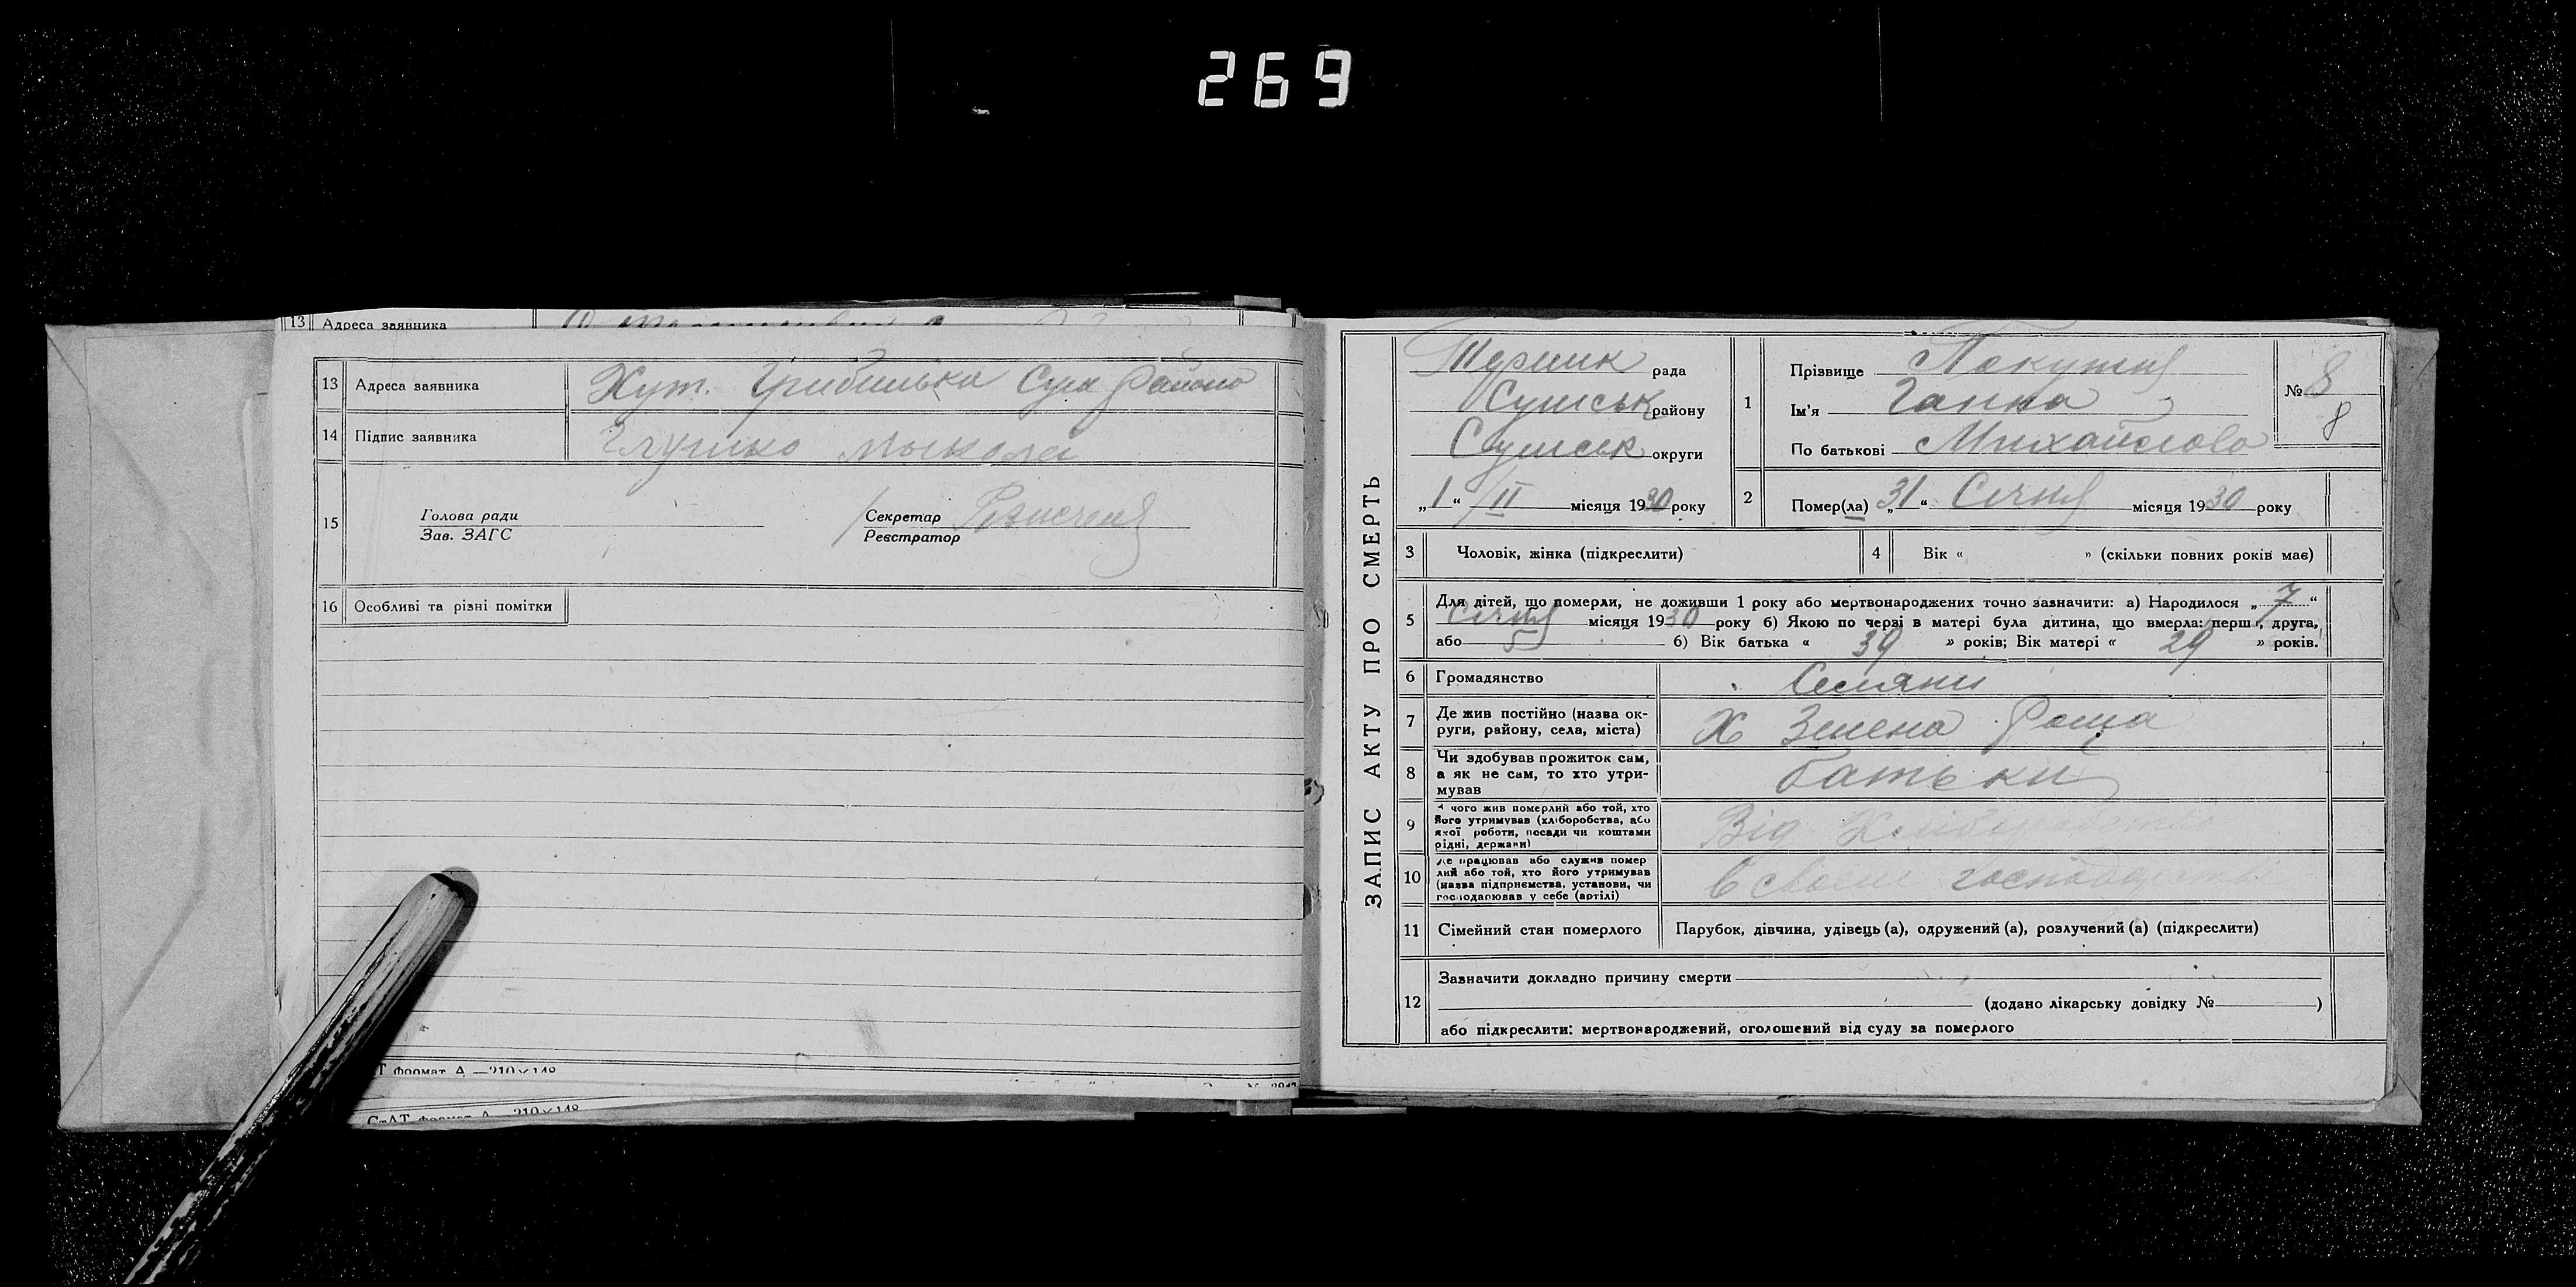 269
13 Адреса заявника
13 Адреса заявника Хут. Грибинька Сум Району
14 Підпис заявника Глушко Мыколаі
15 Голова ради
Зав. ЗАГС
Секретар
Реєстратор
16 Особливі та різні помітки
Т формат А — 210×148
СтАТ формат А — 210×148
ЗАПИС АКТУ ПРО СМЕРТЬ
рада
Сумськ району
Сумськ округи
„1“ II місяця 1930 року
1 Прізвище Покутня
Ім'я Ганна
По батькові Михайлова
№ 8
8
2 Помер(ла) „31“ Січня місяця 1930 року
3 Чоловік, жінка (підкреслити)
4 Вік « » (скільки повних років має)
5 Для дітей, що померли, не доживши 1 року або мертвонароджених точно зазначити: а) Народилося „7“
Січня місяця 1930 року б) Якою по черзі в матері була дитина, що вмерла: перша, друга,
або 5 б) Вік батька « 39 » років; Вік матері « 29 » років.
6 Громадянство Селяни
7 Де жив постійно (назва ок-
руги, району, села, міста) Х Зелена Роща
8 Чи здобував прожиток сам,
а як не сам, то хто утри-
мував батьки
9 чого жив померлий або той, хто
його утримував (хліборобства, або
якої роботи, посади чи коштами
рідні, держави) Від
10 Де працював або служив помер
лий або той, хто його утримував
(назва підприємства, установи, чи
господарював у себе (артілі) в своем
11 Сімейний стан померлого Парубок, дівчина, удівець (а), одружений (а), розлучений (а) (підкреслити)
12 Зазначити докладно причину смерти
(додано лікарську довідку № )
або підкреслити: мертвонароджений, оголошений від суду за померлого